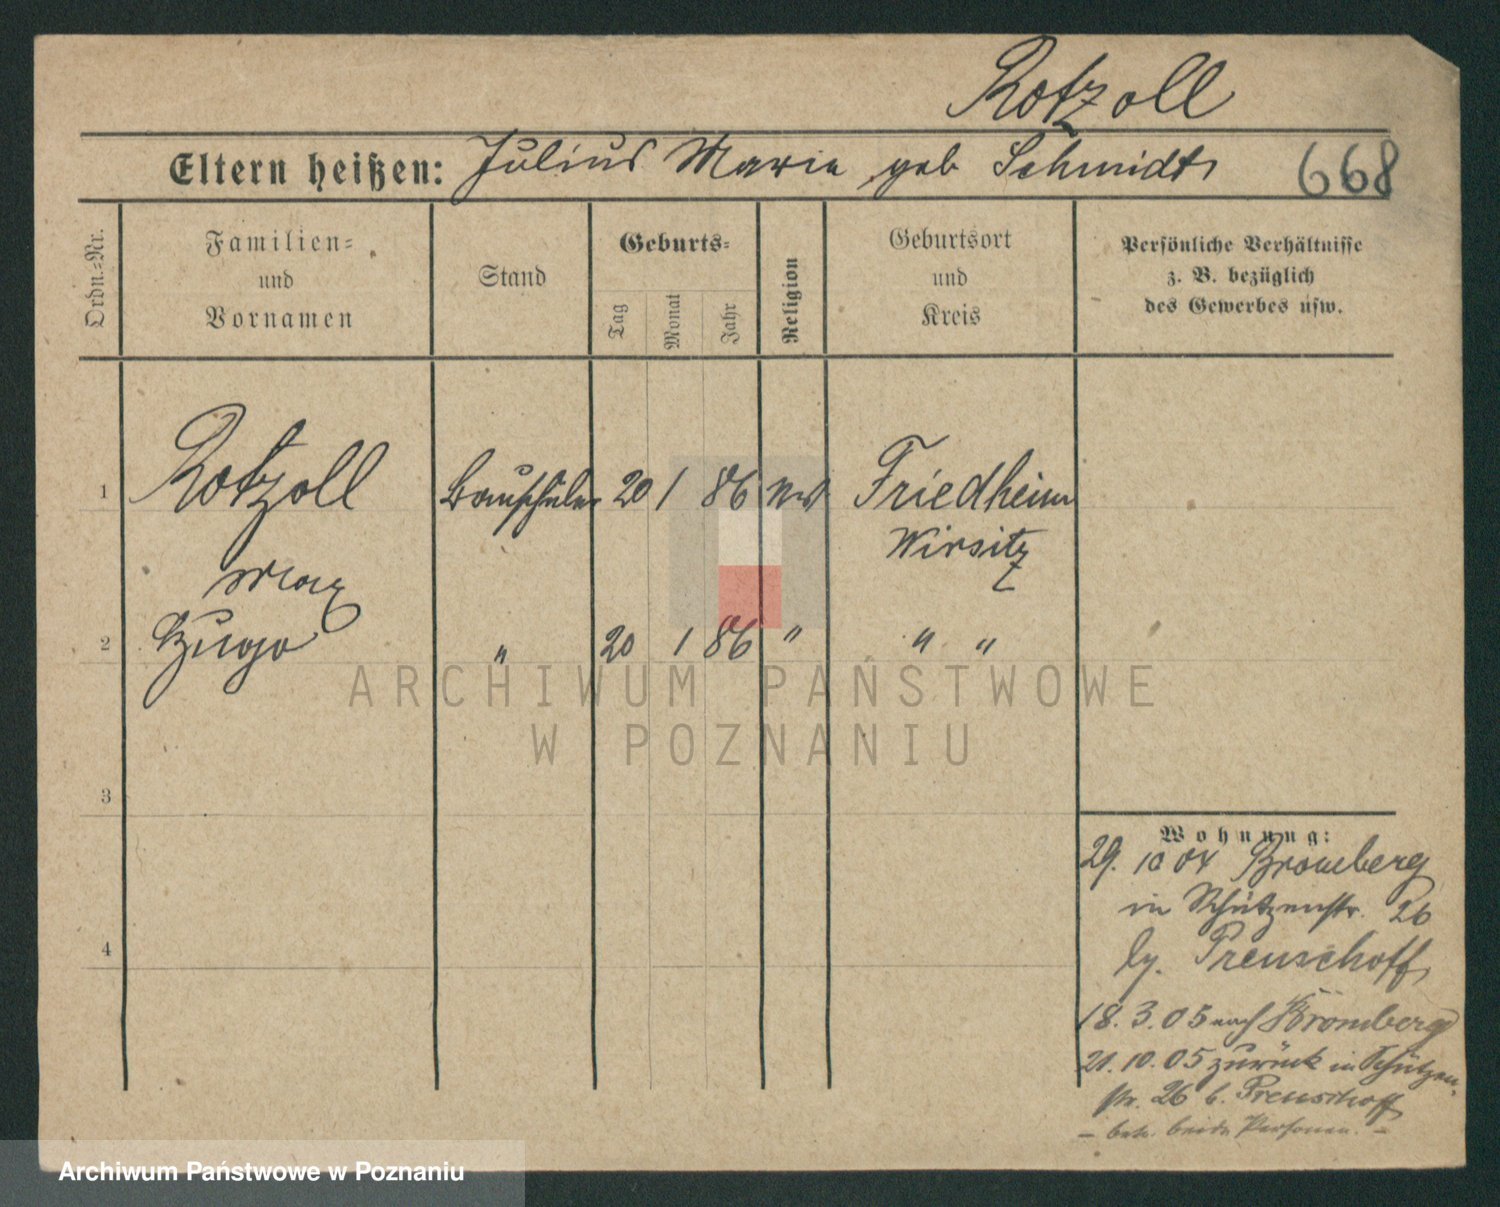 Rotzoll
Eltern heißen: Julius Maria geb Schmidt 668
Ordn.=Nr.
Familien=
und
Vornamen
Stand
Geburts=
Tag
Monat
Jahr
Religion
Geburtsort
und
Kreis
Persönliche Verhältnisse
z. B. bezüglich
des Gewerbes usw.
1 Rotzoll Bauschüler 20 1 86 Friedheim
Wirsitz
Max
2 Hugo " 20 1 86 " " "
3
4
Wohnung:
29. 10 04 Bromberg
in Schützenstr. 26
Preuschoff
18. 3. 05 nach Bromberg
21. 10. 05 zurück in Schützen
str. 26 b. Preuschoff
– betr. beide Personen. –
ARCHIWUM PAŃSTWOWE
W POZNANIU
Archiwum Państwowe w Poznaniu